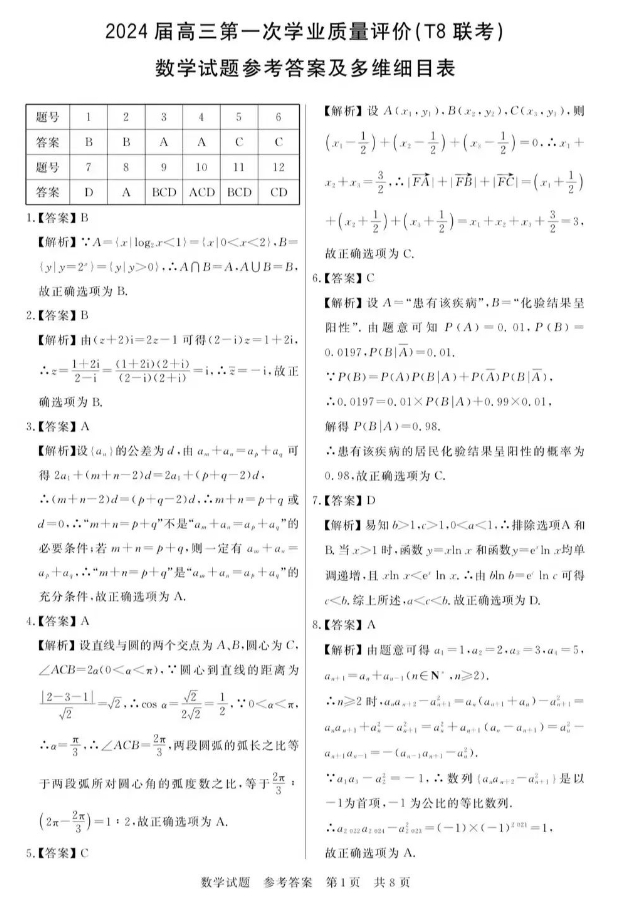 2024 届高三第一次学业质量评价(T8 联考)
数学试题参考答案及多维细目表
题号 1 2 3 4 5 6
答案 B B A A C C
题号 7 8 9 10 11 12
答案 D A BCD ACD BCD CD
1.【答案】B
【解析】∵A={x|log₂x<1}={x|0<x<2},B=
{y|y=2ˣ}={y|y>0},∴A∩B=A,A∪B=B,
故正确选项为 B.
2.【答案】B
【解析】由(z+2)i=2z-1 可得(2-i)z=1+2i,
∴z=(1+2i)/(2-i)=(1+2i)(2+i)/(2-i)(2+i)=i,∴z̅=-i,故正
确选项为 B.
3.【答案】A
【解析】设{aₙ}的公差为 d,由 aₘ+aₙ=aₚ+a_q 可
得 2a₁+(m+n-2)d=2a₁+(p+q-2)d,
∴(m+n-2)d=(p+q-2)d,∴m+n=p+q 或
d=0,∴“m+n=p+q”不是“aₘ+aₙ=aₚ+a_q”的
必要条件;若 m+n=p+q,则一定有 aₘ+aₙ=
aₚ+a_q,∴“m+n=p+q”是“aₘ+aₙ=aₚ+a_q”的
充分条件,故正确选项为 A.
4.【答案】A
【解析】设直线与圆的两个交点为 A、B,圆心为 C,
∠ACB=2α(0<α<π),∵圆心到直线的距离为
|2-3-1|/√2=√2,∴cos α=√2/2√2=1/2,∵0<α<π,
∴α=π/3,∴∠ACB=2π/3,两段圆弧的弧长之比等
于两段弧所对圆心角的弧度数之比,等于 2π/3 :
(2π-2π/3)=1:2,故正确选项为 A.
5.【答案】C
【解析】设 A(x₁,y₁),B(x₂,y₂),C(x₃,y₃),则
(x₁-1/2)+(x₂-1/2)+(x₃-1/2)=0,∴x₁+
x₂+x₃=3/2,∴|FA→|+|FB→|+|FC→|=(x₁+1/2)
+(x₂+1/2)+(x₃+1/2)=x₁+x₂+x₃+3/2=3,
故正确选项为 C.
6.【答案】C
【解析】设 A=“患有该疾病”,B=“化验结果呈
阳性”. 由题意可知 P(A)=0.01,P(B)=
0.0197,P(B|A̅)=0.01.
∵P(B)=P(A)P(B|A)+P(A̅)P(B|A̅),
∴0.0197=0.01×P(B|A)+0.99×0.01,
解得 P(B|A)=0.98.
∴患有该疾病的居民化验结果呈阳性的概率为
0.98,故正确选项为 C.
7.【答案】D
【解析】易知 b>1,c>1,0<a<1,∴排除选项A 和
B. 当 x>1 时,函数 y=xln x 和函数y=eˣln x均单
调递增,且 xln x<eˣ ln x. ∴由 bln b=eᶜ ln c 可得
c<b. 综上所述,a<c<b. 故正确选项为 D.
8.【答案】A
【解析】由题意可得 a₁=1,a₂=2,a₃=3,a₄=5,
aₙ₊₁=aₙ+aₙ₋₁(n∈N*,n≥2).
∴n≥2 时,aₙaₙ₊₂-a²ₙ₊₁=aₙ(aₙ₊₁+aₙ)-a²ₙ₊₁=
aₙaₙ₊₁+a²ₙ-a²ₙ₊₁=a²ₙ+aₙ₊₁(aₙ-aₙ₊₁)=a²ₙ-
aₙ₊₁aₙ₋₁=-(aₙ₋₁aₙ₊₁-a²ₙ).
∵a₁a₃-a²₂=-1,∴数列{aₙaₙ₊₂-a²ₙ₊₁}是以
-1为首项,-1 为公比的等比数列.
∴a₂₀₂₂a₂₀₂₄-a²₂₀₂₃=(-1)×(-1)²⁰²¹=1,
故正确选项为 A.
数学试题 参考答案 第1页 共8页